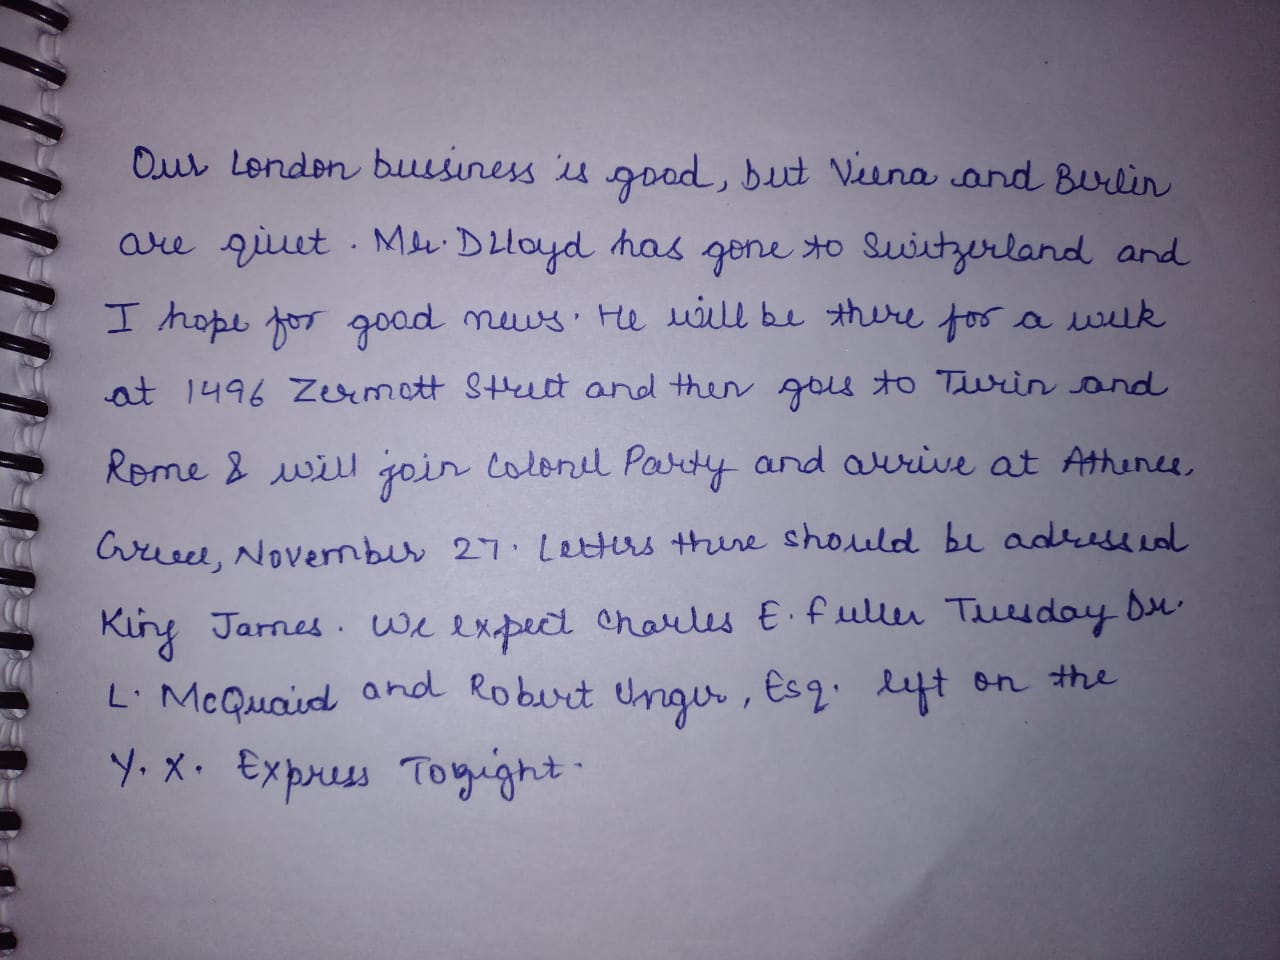 Our London bussiness is good, but Viena and Berlin
are qiuet. Mr. D Lloyd has gone to Switzerland and
I hope for good news. He will be there for a week
at 1496 Zermott Street and then goes to Turin and
Rome & will join Colonel Party and arrive at Athenes,
Greece, November 27. Letters there should be adressed
King James. We expect Charles E. Fuller Tuesday Dr.
L. McQuaid and Robert Unger, Esq. left on the
Y. X. Express